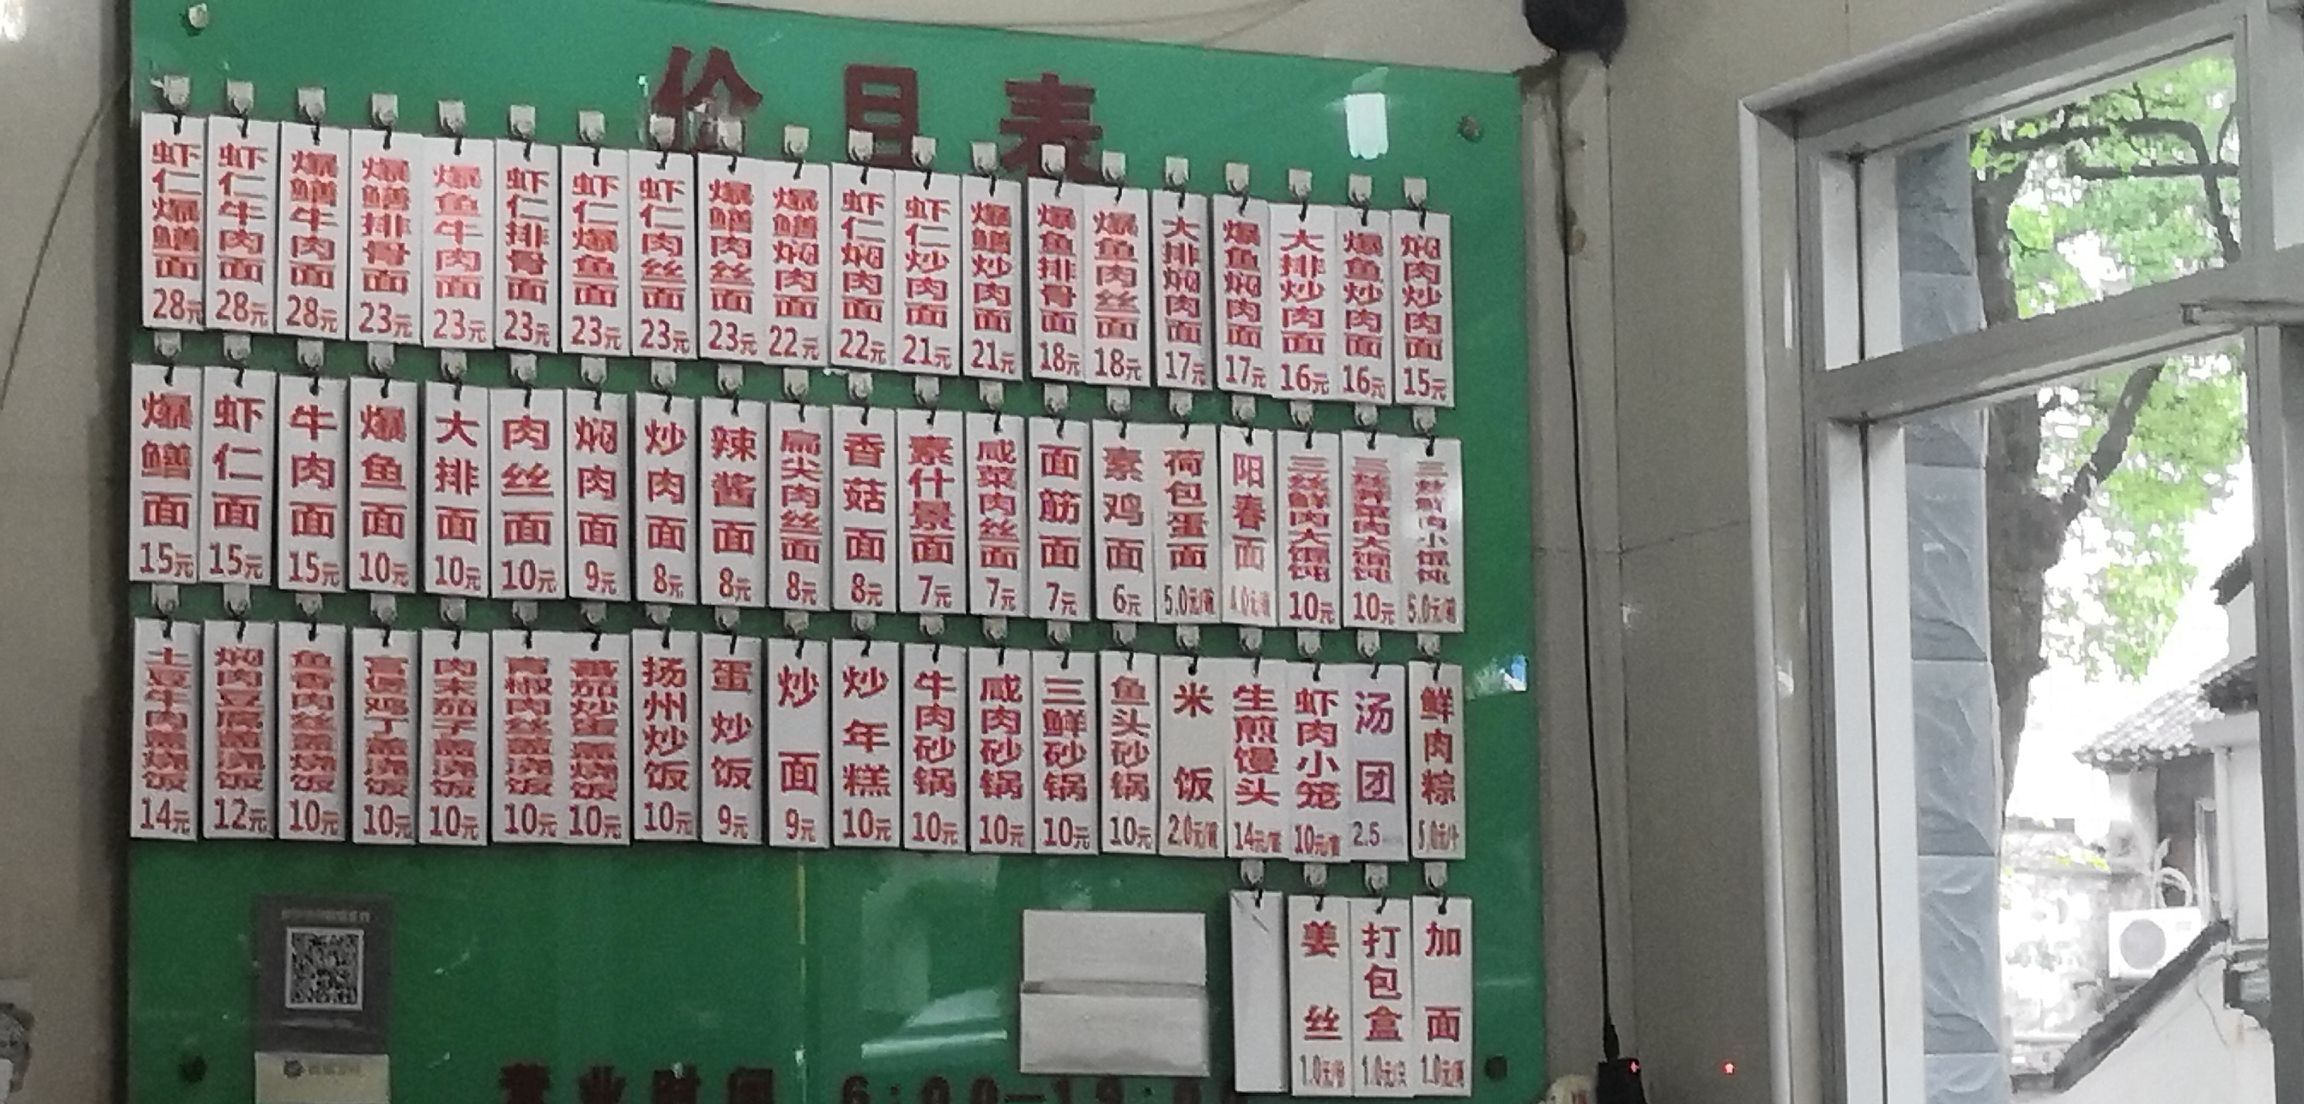 价目表
虾仁爆鳝面 28元
虾仁牛肉面 28元
爆鳝牛肉面 28元
爆鳝排骨面 23元
爆鱼牛肉面 23元
虾仁排骨面 23元
虾仁爆鱼面 23元
虾仁肉丝面 23元
爆鳝肉丝面 23元
爆鳝焖肉面 22元
虾仁焖肉面 22元
虾仁炒肉面 21元
爆鳝炒肉面 21元
爆鱼排骨面 18元
爆鱼肉丝面 18元
大排焖肉面 17元
爆鱼焖肉面 17元
大排炒肉面 16元
爆鱼炒肉面 16元
焖肉炒肉面 15元
爆鳝面 15元
虾仁面 15元
牛肉面 15元
爆鱼面 10元
大排面 10元
肉丝面 10元
焖肉面 9元
炒肉面 8元
辣酱面 8元
扁尖肉丝面 8元
香菇面 8元
素什景面 7元
咸菜肉丝面 7元
面筋面 7元
素鸡面 6元
荷包蛋面 5.0元/碗
阳春面 4.0元/碗
三丝鲜肉大馄饨 10元
三丝荠菜肉大馄饨 10元
三丝鲜肉小馄饨 5.0元/碗
土豆牛肉盖浇饭 14元
焖肉豆腐盖浇饭 12元
鱼香肉丝盖浇饭 10元
宫保鸡丁盖浇饭 10元
肉末茄子盖浇饭 10元
青椒肉丝盖浇饭 10元
番茄炒蛋盖浇饭 10元
扬州炒饭 10元
蛋炒饭 9元
炒面 9元
炒年糕 10元
牛肉砂锅 10元
咸肉砂锅 10元
三鲜砂锅 10元
鱼头砂锅 10元
米饭 2.0元/碗
生煎馒头 14元/客
虾肉小笼 10元/客
汤团 2.5
鲜肉粽 5.0元/个
姜丝 1.0元/份
打包盒 1.0元/只
加面 1.0元/两
营业时间 6:00—19: